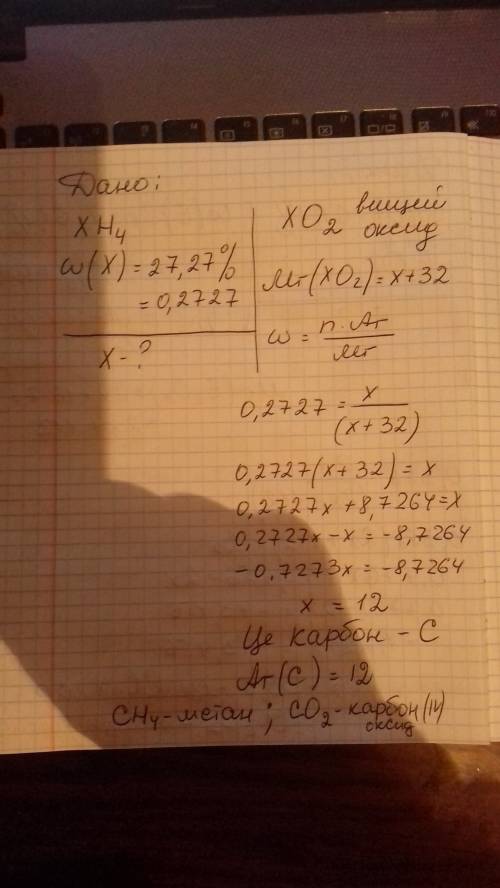 Дано:
XH4
ω(X) = 27,27%
= 0,2727
X - ?
XO2 вищей
оксид
Mr(XO2) = x+32
ω = n·Ar / Mr
0,2727 = x / (x+32)
0,2727(x+32) = x
0,2727x + 8,7264 = x
0,2727x - x = -8,7264
-0,7273x = -8,7264
x = 12
Це карбон - C
Ar(C) = 12
CH4 - метан ; CO2 - карбон (IV)
оксид